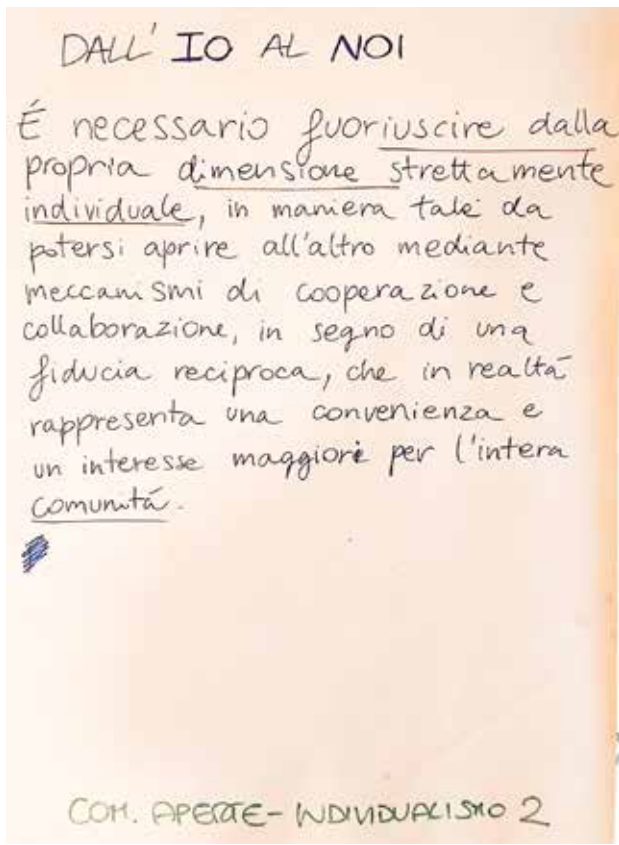 DALL' IO AL NOI
É necessario fuoriuscire dalla
propria dimensione strettamente
individuale, in maniera tale da
potersi aprire all'altro mediante
meccanismi di cooperazione e
collaborazione, in segno di una
fiducia reciproca, che in realtá
rappresenta una convenienza e
un interesse maggiore per l'intera
comunitá.
COM. APERTE - INDIVIDUALISMO 2